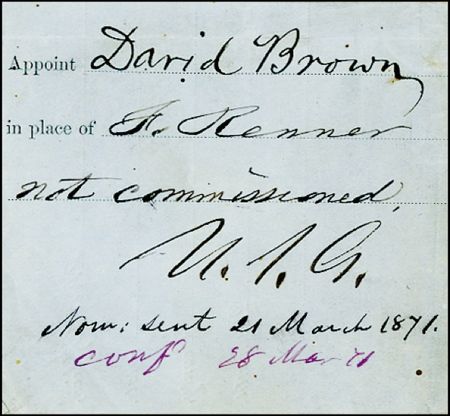 Appoint David Brown
in place of F. Renner
not commissioned,
U. S. G.
Nom: sent 21 March 1871.
conf 28 Mar 71